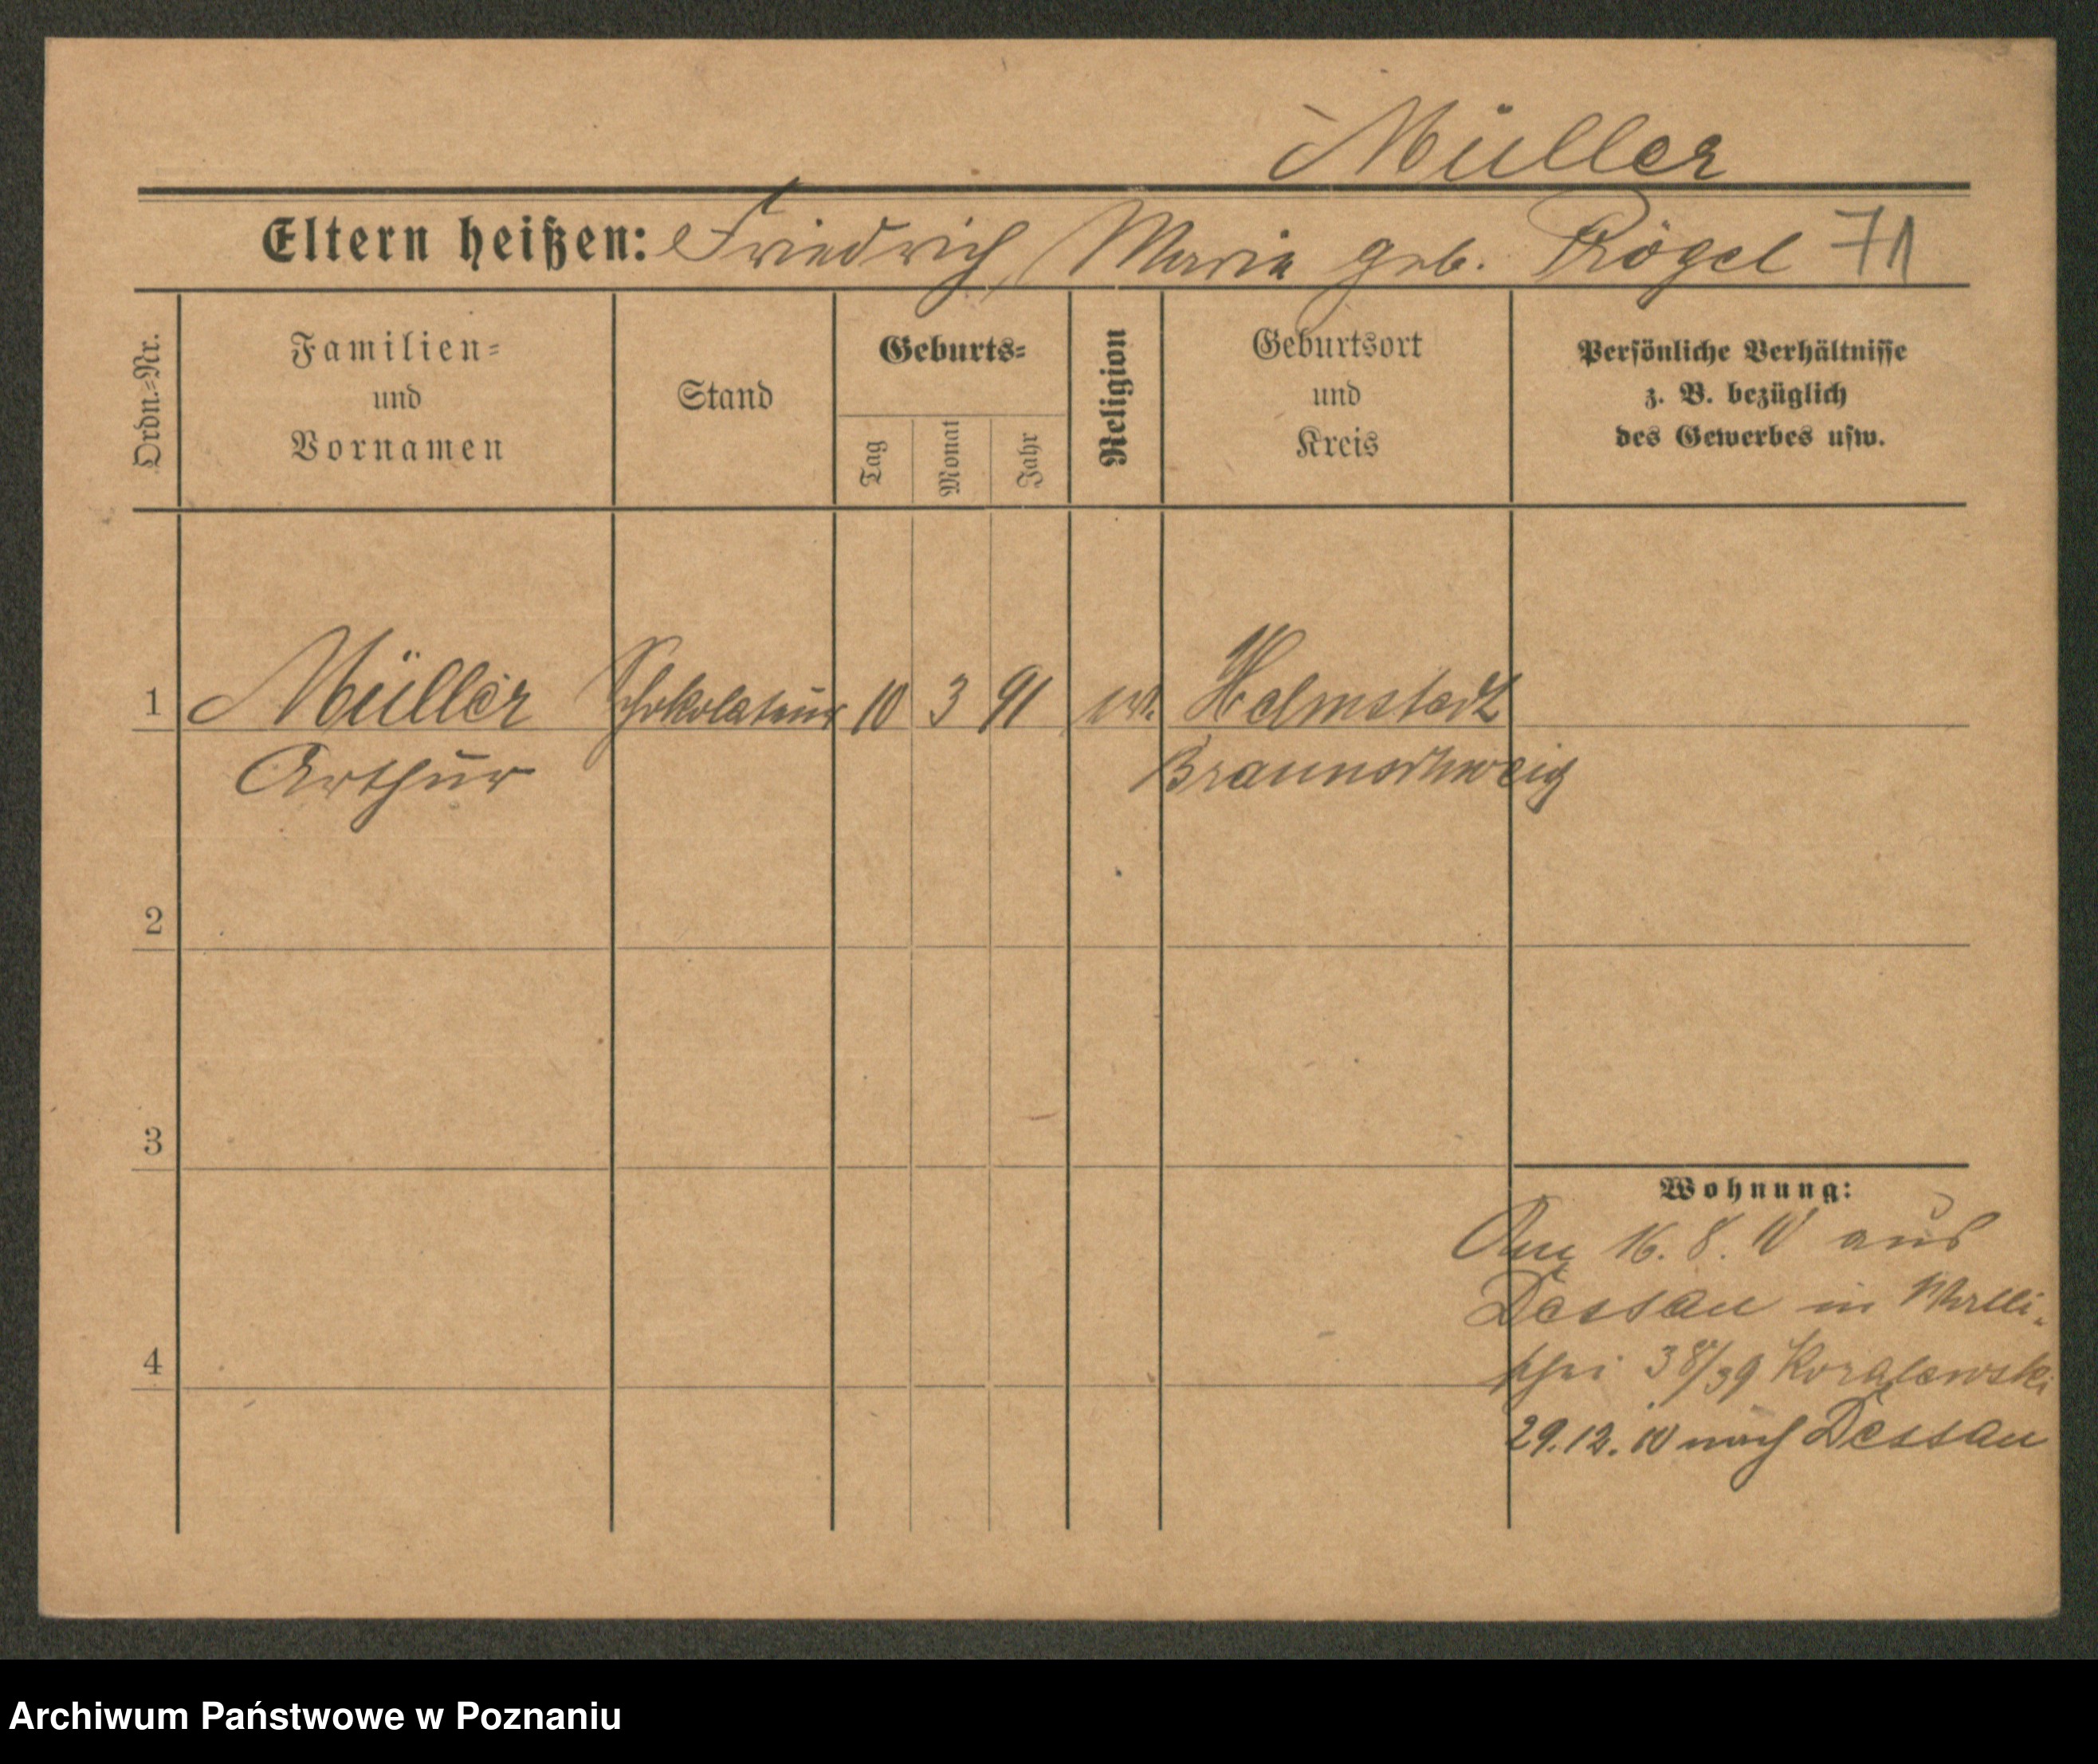 Müller
Eltern heißen: Friedrich, Maria geb. Rögel 71
Ordn.-Nr.
Familien-
und
Vornamen
Stand
Geburts-
Tag
Monat
Jahr
Religion
Geburtsort
und
Kreis
Persönliche Verhältnisse
z. B. bezüglich
des Gewerbes usw.
1 Müller Schokolateur 10 3 91 ev. Helmstedt
Arthur Braunschweig
2
3
4
Wohnung:
16. 8. 10 aus
Dessau in Walli-
schei 38/39 Koralewski
29.12.10 nach Dessau
Archiwum Państwowe w Poznaniu